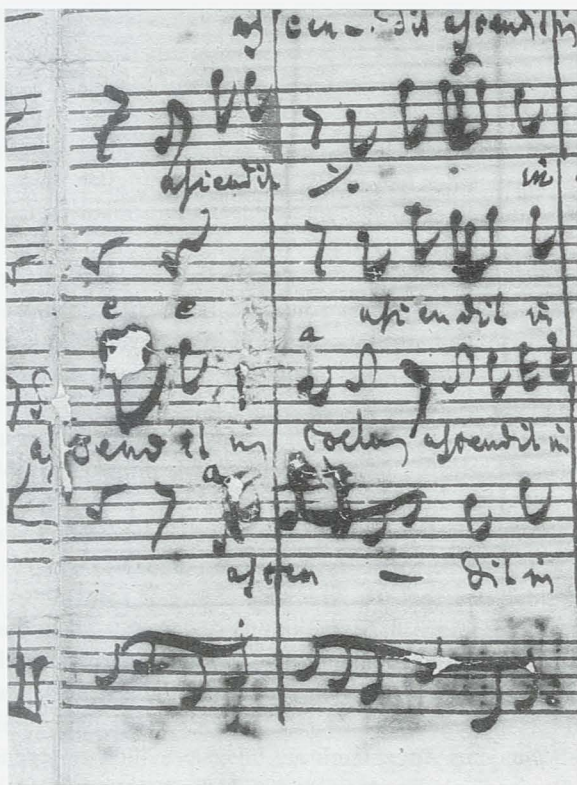 ascen - dit ascendit in
ascendit ./. in
e e ascendit in
a
ascendit in coelum ascendit in
a
ascen - dit in